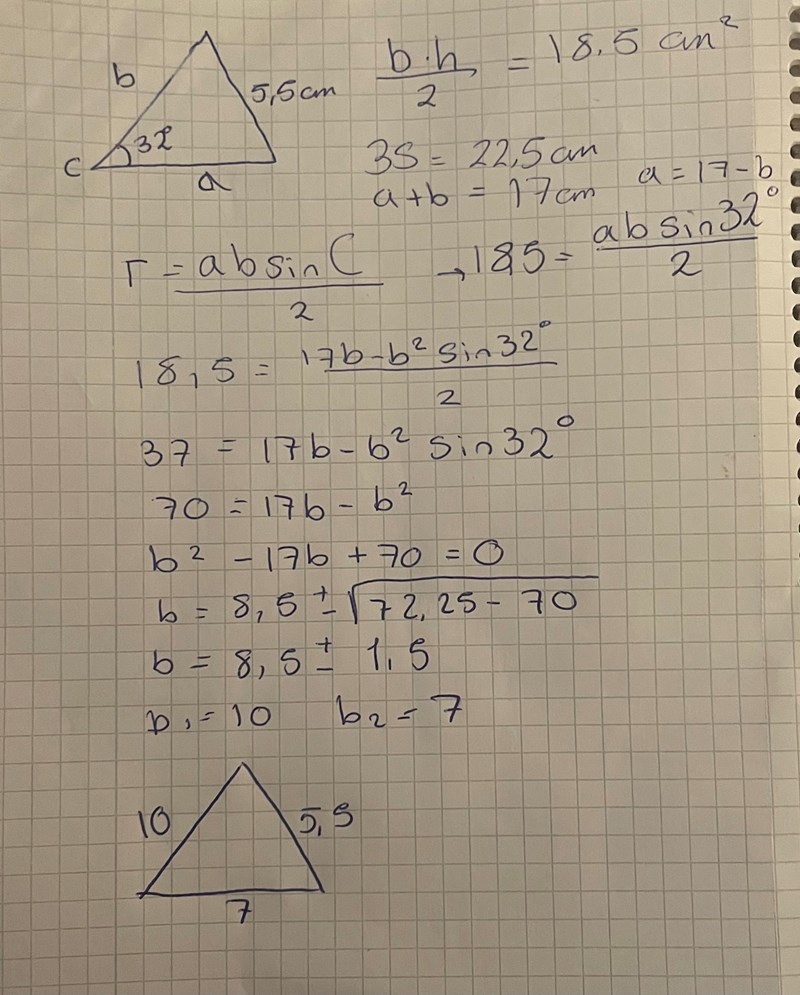 b
5,5cm
C
32
a
b·h/2 = 18.5 cm²
3S = 22,5cm
a+b = 17cm a = 17-b
T = ab sin C/2 → 185 = ab sin 32°/2
18,5 = 17b-b² sin 32°/2
37 = 17b - b² sin 32°
70 = 17b - b²
b² - 17b + 70 = 0
b = 8,5 ± √72,25 - 70
b = 8,5 ± 1,5
b₁ = 10 b₂ = 7
10
5,5
7